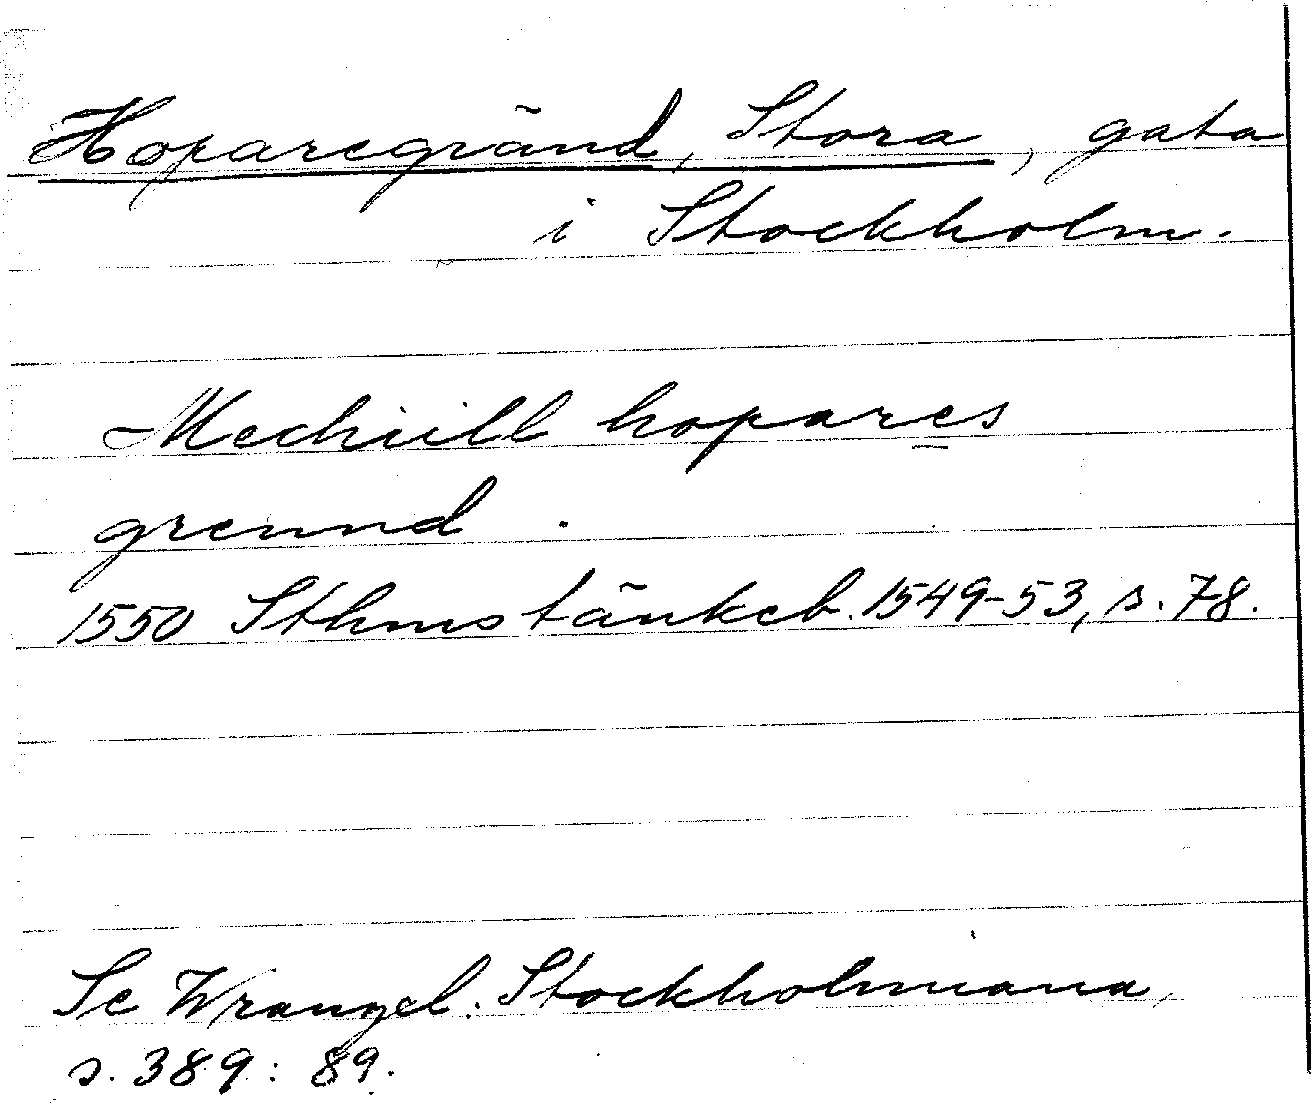 Hoparegränd, Stora, gata
i Stockholm.
Mechiill hopares
grennd.
1550 Sthms tänkeb. 1549-53, s. 78.
Se Wrangel: Stockholmiana,
s. 389: 89.